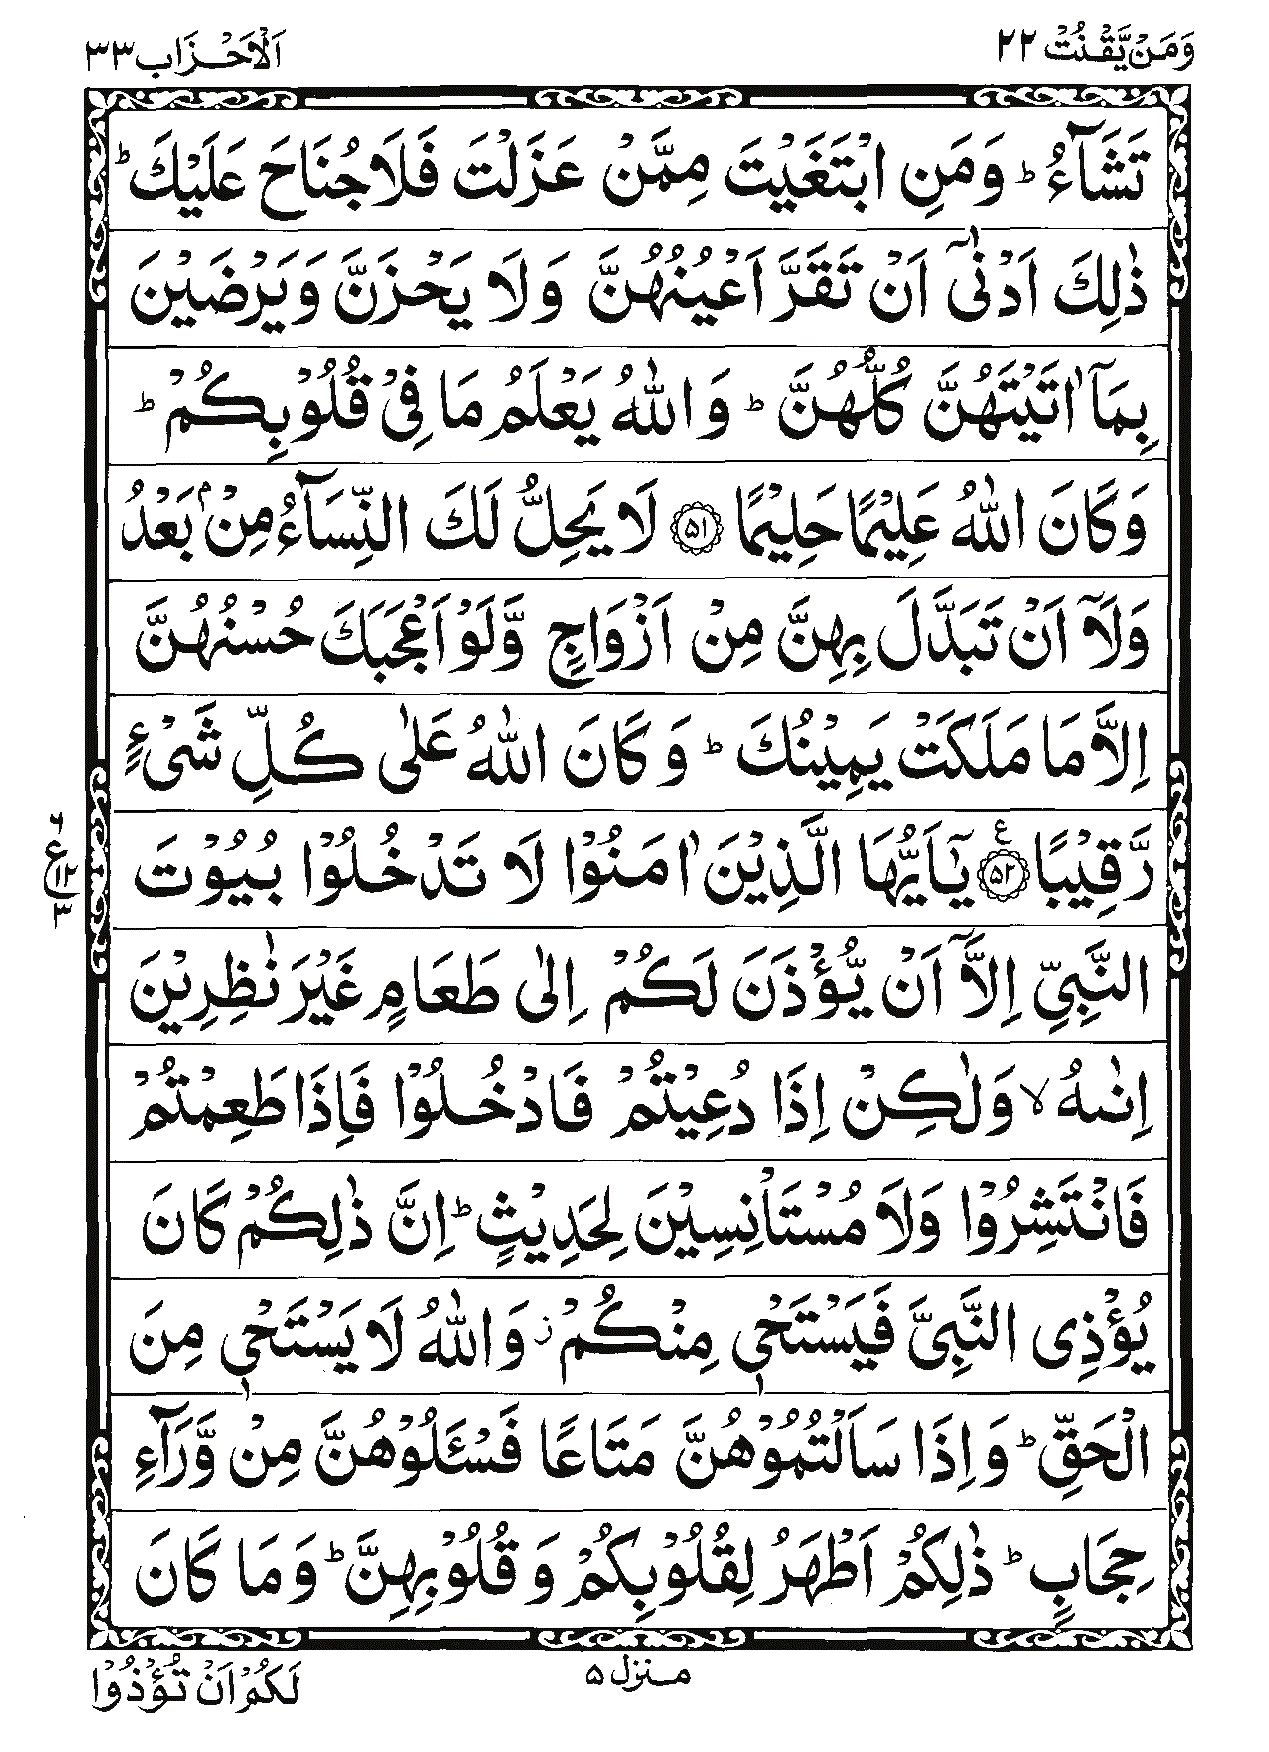 وَمَنۡ يَّقۡنُتۡ ٢٢
اَلۡاَحۡزَاب ٣٣
تَشَآءُ ؕ وَمَنِ ابۡتَغَيۡتَ مِمَّنۡ عَزَلۡتَ فَلَا جُنَاحَ عَلَيۡكَ ؕ
ذٰلِكَ اَدۡنٰٓى اَنۡ تَقَرَّ اَعۡيُنُهُنَّ وَلَا يَحۡزَنَّ وَيَرۡضَيۡنَ
بِمَاۤ اٰتَيۡتَهُنَّ كُلُّهُنَّ ؕ وَاللّٰهُ يَعۡلَمُ مَا فِىۡ قُلُوۡبِكُمۡ ؕ
وَكَانَ اللّٰهُ عَلِيۡمًا حَلِيۡمًا ﴿۵۱﴾ لَا يَحِلُّ لَكَ النِّسَآءُ مِنۡۢ بَعۡدُ
وَلَاۤ اَنۡ تَبَدَّلَ بِهِنَّ مِنۡ اَزۡوَاجٍ وَّلَوۡ اَعۡجَبَكَ حُسۡنُهُنَّ
اِلَّا مَا مَلَكَتۡ يَمِيۡنُكَ ؕ وَكَانَ اللّٰهُ عَلٰى كُلِّ شَىۡءٍ
رَّقِيۡبًا ﴿۵۲﴾ ع يٰۤاَيُّهَا الَّذِيۡنَ اٰمَنُوۡا لَا تَدۡخُلُوۡا بُيُوۡتَ
٦ ع ١٢ ٣
النَّبِىِّ اِلَّاۤ اَنۡ يُّؤۡذَنَ لَكُمۡ اِلٰى طَعَامٍ غَيۡرَ نٰظِرِيۡنَ
اِنٰٮهُ ۙ وَلٰكِنۡ اِذَا دُعِيۡتُمۡ فَادۡخُلُوۡا فَاِذَا طَعِمۡتُمۡ
فَانۡتَشِرُوۡا وَلَا مُسۡتَاۡنِسِيۡنَ لِحَدِيۡثٍ ؕ اِنَّ ذٰلِكُمۡ كَانَ
يُؤۡذِى النَّبِىَّ فَيَسۡتَحۡىٖ مِنۡكُمۡ ز وَاللّٰهُ لَا يَسۡتَحۡىٖ مِنَ
الۡحَقِّ ؕ وَاِذَا سَاَلۡتُمُوۡهُنَّ مَتَاعًا فَسۡـَٔلُوۡهُنَّ مِنۡ وَّرَآءِ
حِجَابٍ ؕ ذٰلِكُمۡ اَطۡهَرُ لِقُلُوۡبِكُمۡ وَقُلُوۡبِهِنَّ ؕ وَمَا كَانَ
منزل ۵
لَكُمۡ اَنۡ تُؤۡذُوۡا